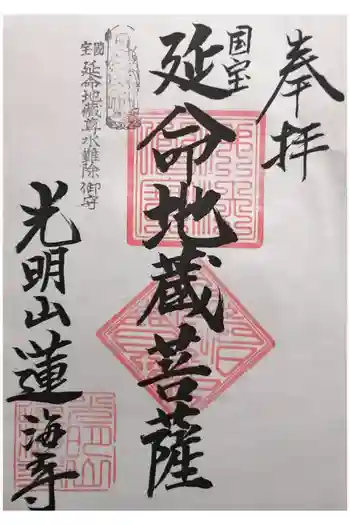 奉拝
国宝
延命地蔵菩薩
國宝
延命地蔵尊水難除御守
光明山蓮海寺